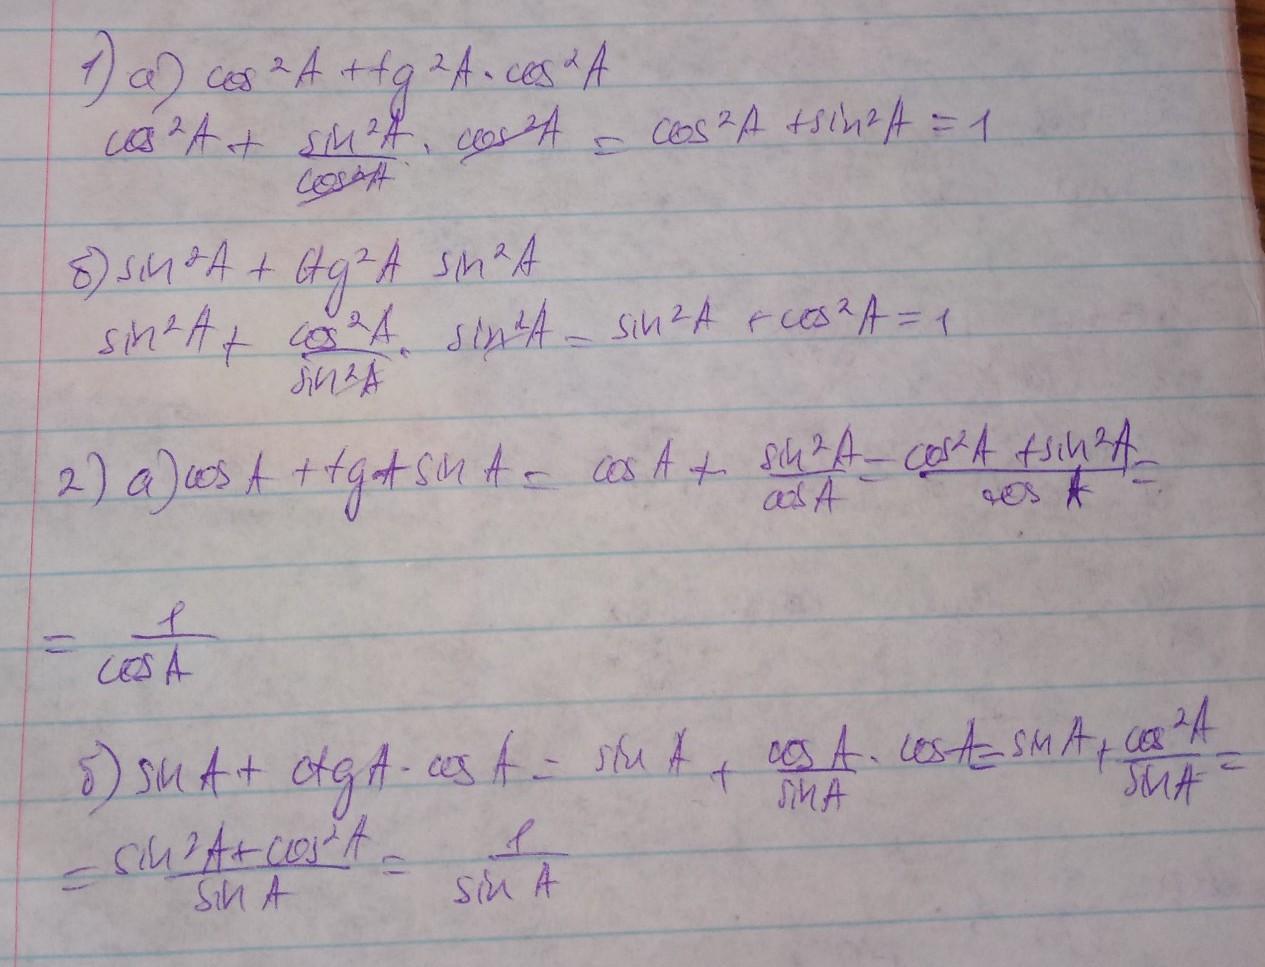 1) а) cos²A + tg²A · cos²A
cos²A + sin²A/cos²A · cos²A = cos²A + sin²A = 1
б) sin²A + ctg²A sin²A
sin²A + cos²A/sin²A · sin²A = sin²A + cos²A = 1
2) а) cos A + tgA sin A = cos A + sin²A/cos A = cos²A + sin²A/cos A =
= 1/cos A
б) sin A + ctg A · cos A = sin A + cos A/sin A · cos A = sin A + cos²A/sin A =
= sin²A + cos²A/sin A = 1/sin A